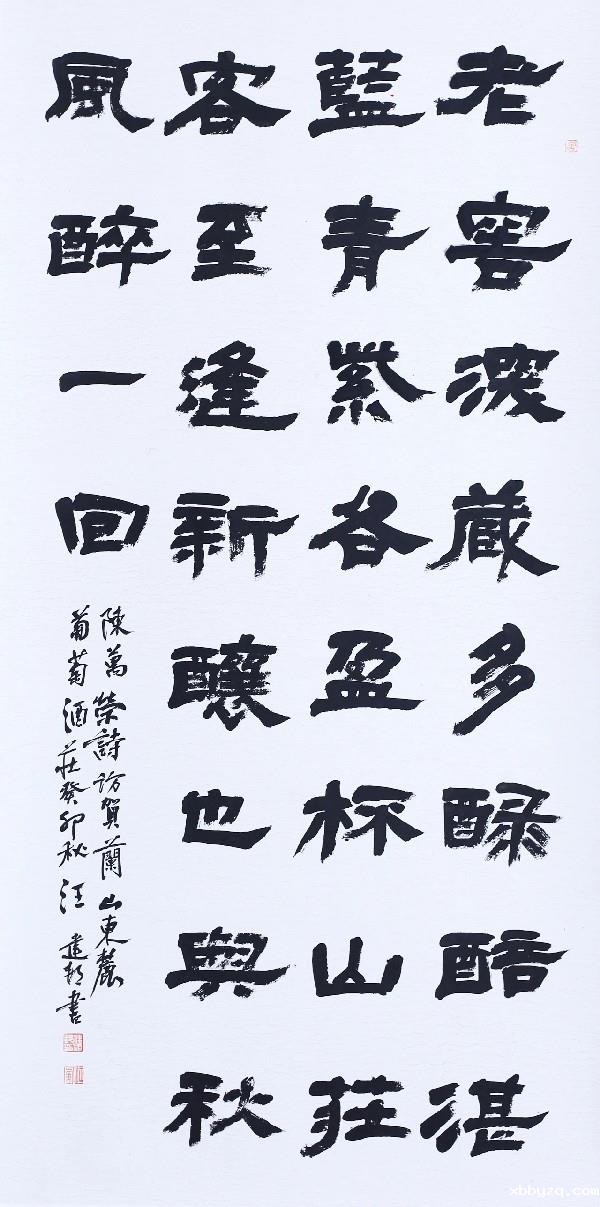 老窖深蔵多醁醅湛
藍青紫各盈杯山莊
客至逢新釀也與秋
風醉一回
陳萬榮詩訪賀蘭山東麓
葡萄酒莊癸卯秋汪書
xbbyzq.com